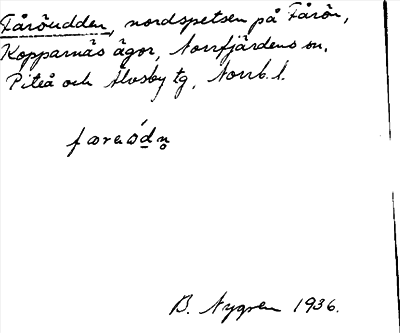 Fåröudden, nordspetsen på Fårön,
Kopparnäs ägor, Norrfjärdens sn,
Piteå och Älvsby tg, Norrb. l.
B. Nygren 1936.